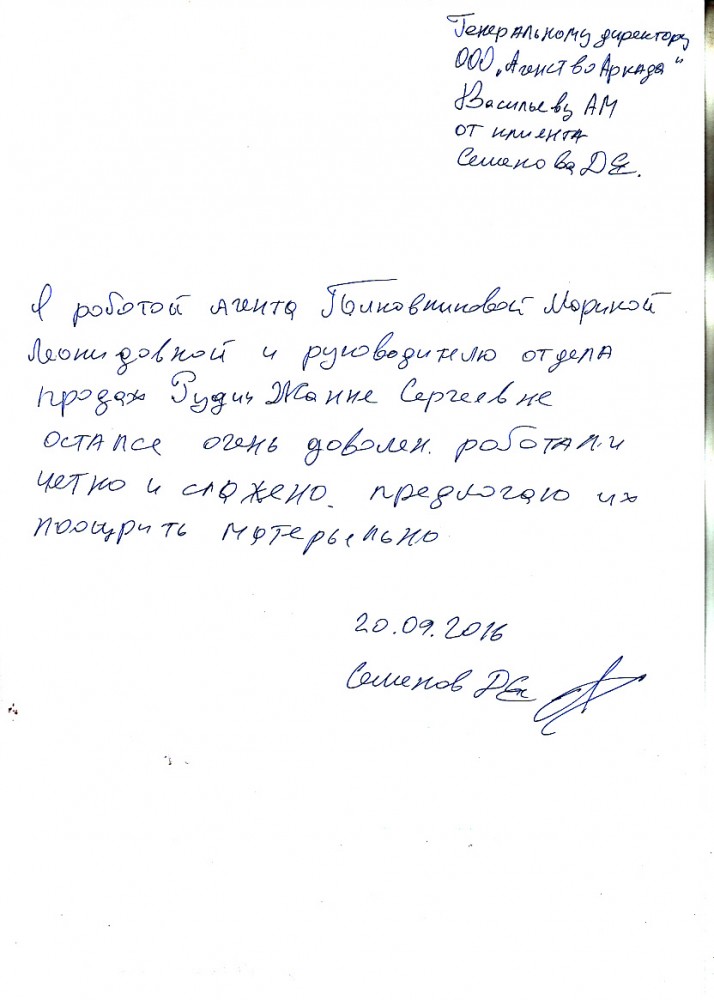 Генеральному директору
ООО „Агенство Аркада"
Васильеву АМ
от клиента
Семенова ДЕ.
Я роботой агента Полковниковой Мариной
Леонидовной и руководителю отдела
продаж Рудич Жанне Сергеевне
остался очень доволен. работали
четко и слажено. предлогаю их
поощрить матерьяльно
20.09.2016
Семенов ДЕ